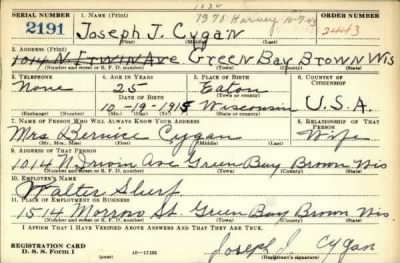 SERIAL NUMBER 1. NAME (Print) ORDER NUMBER
1370 Harvey 10-7-40
2191 Joseph J. Cygan 2443
(First) (Middle) (Last)
2. ADDRESS (Print)
1014 N. Irwin Ave Green Bay Brown Wis
(Number and street or R. F. D. number) (Town) (County) (State)
3. TELEPHONE 4. AGE IN YEARS 5. PLACE OF BIRTH 6. COUNTRY OF CITIZENSHIP
None 25 Eaton
DATE OF BIRTH (Town or county)
10-19-1915 Wisconsin U.S.A.
(Exchange) (Number) (Mo.) (Day) (Yr.) (State or country)
7. NAME OF PERSON WHO WILL ALWAYS KNOW YOUR ADDRESS 8. RELATIONSHIP OF THAT PERSON
Mrs Bernice Cygan Wife
(Mr., Mrs., Miss) (First) (Middle) (Last)
9. ADDRESS OF THAT PERSON
1014 N. Irwin Ave Green Bay Brown Wis
(Number and street or R. F. D. number) (Town) (County) (State)
10. EMPLOYER'S NAME
Walter
11. PLACE OF EMPLOYMENT OR BUSINESS
1514 Morrow St. Green Bay Brown Wis.
(Number and street or R. F. D. number) (Town) (County) (State)
I AFFIRM THAT I HAVE VERIFIED ABOVE ANSWERS AND THAT THEY ARE TRUE.
REGISTRATION CARD
D. S. S. Form 1 16-17105 Joseph J. Cygan
(Registrant's signature)